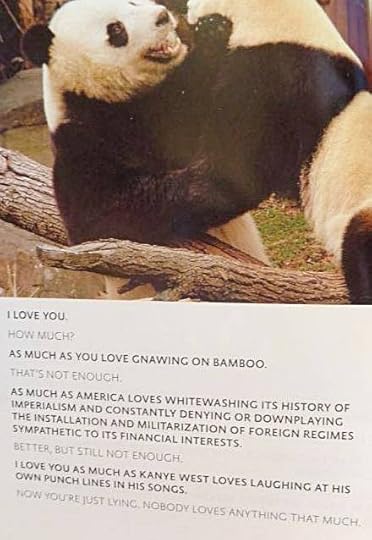 I LOVE YOU.
HOW MUCH?
AS MUCH AS YOU LOVE GNAWING ON BAMBOO.
THAT'S NOT ENOUGH.
AS MUCH AS AMERICA LOVES WHITEWASHING ITS HISTORY OF
IMPERIALISM AND CONSTANTLY DENYING OR DOWNPLAYING
THE INSTALLATION AND MILITARIZATION OF FOREIGN REGIMES
SYMPATHETIC TO ITS FINANCIAL INTERESTS.
BETTER, BUT STILL NOT ENOUGH.
I LOVE YOU AS MUCH AS KANYE WEST LOVES LAUGHING AT HIS
OWN PUNCH LINES IN HIS SONGS.
NOW YOU'RE JUST LYING. NOBODY LOVES ANYTHING THAT MUCH.